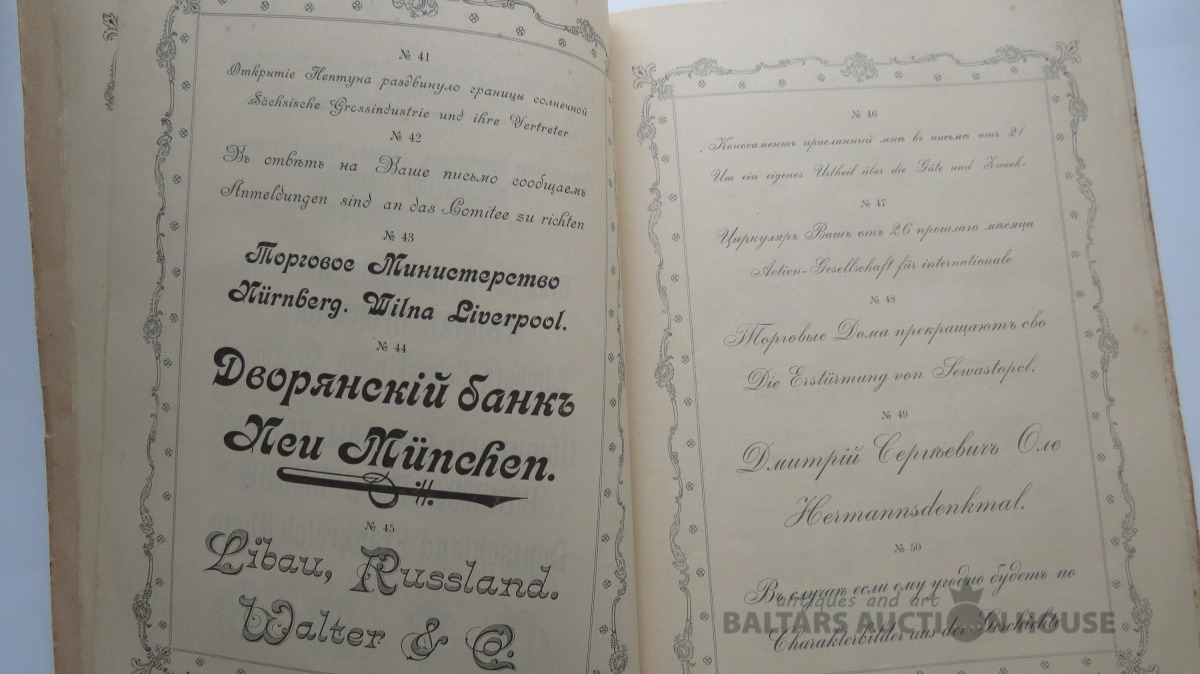 № 41
Открытіе Нептуна раздвинуло границы солнечной
Sächsische Grossindustrie und ihre Vertreter
№ 42
Въ отвѣтъ на Ваше письмо сообщаемъ
Anmeldungen sind an das Comitee zu richten
№ 43
Торговое Министерство
Nürnberg. Wilna Liverpool.
№ 44
Дворянскій банкъ
Neu München.
№ 45
Libau, Russland.
Walter & C.
№ 46
Коносаментъ присланный мнѣ въ письмѣ отъ 21
Um ein eigenes Urtheil über die Güte und Zweck-
№ 47
Циркуляръ Вашъ отъ 26 прошлаго мѣсяца
Actien-Gesellschaft für internationale
№ 48
Торговые Дома прекращаютъ сво
Die Erstürmung von Sewastopel.
№ 49
Дмитрій Сергѣевичъ Оле
Hermannsdenkmal.
№ 50
Въ случаѣ если ему угодно будетъ по
Charakterbilder aus der Geschichte
antiques and art
BALTARS AUCTION HOUSE